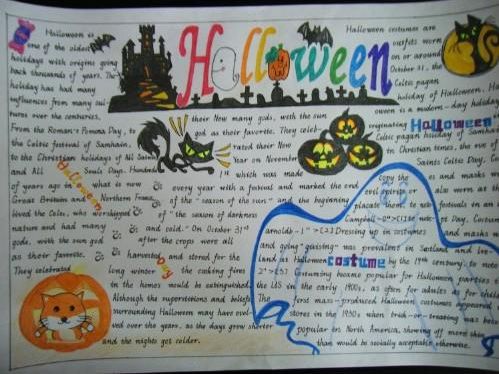 Halloween
Halloween is
one of the oldest
holidays with origins going
back thousands of years. The
holiday has had many
influences from many cul-
tures over the centuries.
From the Roman's Pomona Day, to
the Celtic festival of Samhain,
to the Christian holidays of All Saints
and All Souls Days. Hundreds
of years ago in what is now
Great Britain and Northern France,
lived the Celts, who worshipped
nature and had many
gods, with the sun god
as their favorite.
They celebrated
Halloween
their New many gods, with the sun
god as their favorite. They celeb-
rated their New
Year on November
1st which was made
every year with a festival and marked the end
of the "season of the sun" and the beginning
of "the season of darkness
and cold." On October 31st
after the crops were all
harvested and stored for the
long winter the cooking fires
in the homes would be extinguished,
Although the superstitions and beliefs
surrounding Halloween may have evol-
ved over the years, as the days grow shorter
and the nights get colder.
Day
Halloween costumes are
outfits worn
on or around
October 31, the
Celtic pagan
holiday of Halloween.
is a modern-day
originating
Halloween
Celtic pagan holiday of Samhain
in Christian times, the eve of
Saints Celtic Day.
copy the and masks
evil
placate
Campbell
Dressing up in costumes
and going "guising" was prevalent in Scotland and Ire-
land at Halloween by the 19th century.
costume
became popular for Halloween parties
the US in the early 1900s, as often for adults
first mass-produced Halloween costumes
stores in the 1950s when trick-or-treating was
popular in North America, showing off more
than would be socially acceptable otherwise.